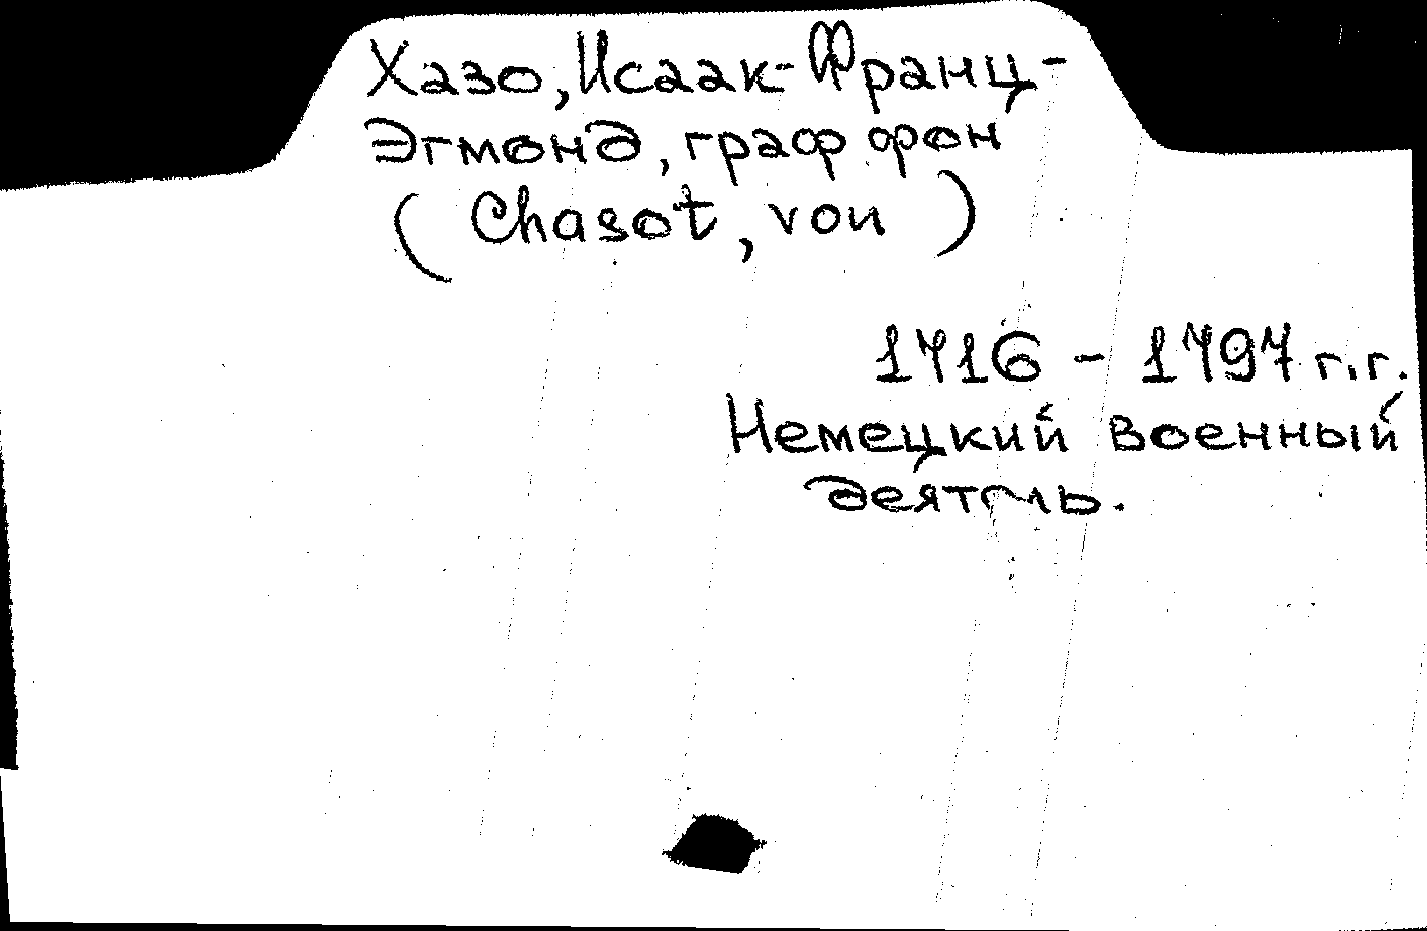 Хазо, Исаак-Франц-
Эгмонд, граф фон
(Chasot, von)
1716 - 1797 г.г.
Немецкий военный
деятель.